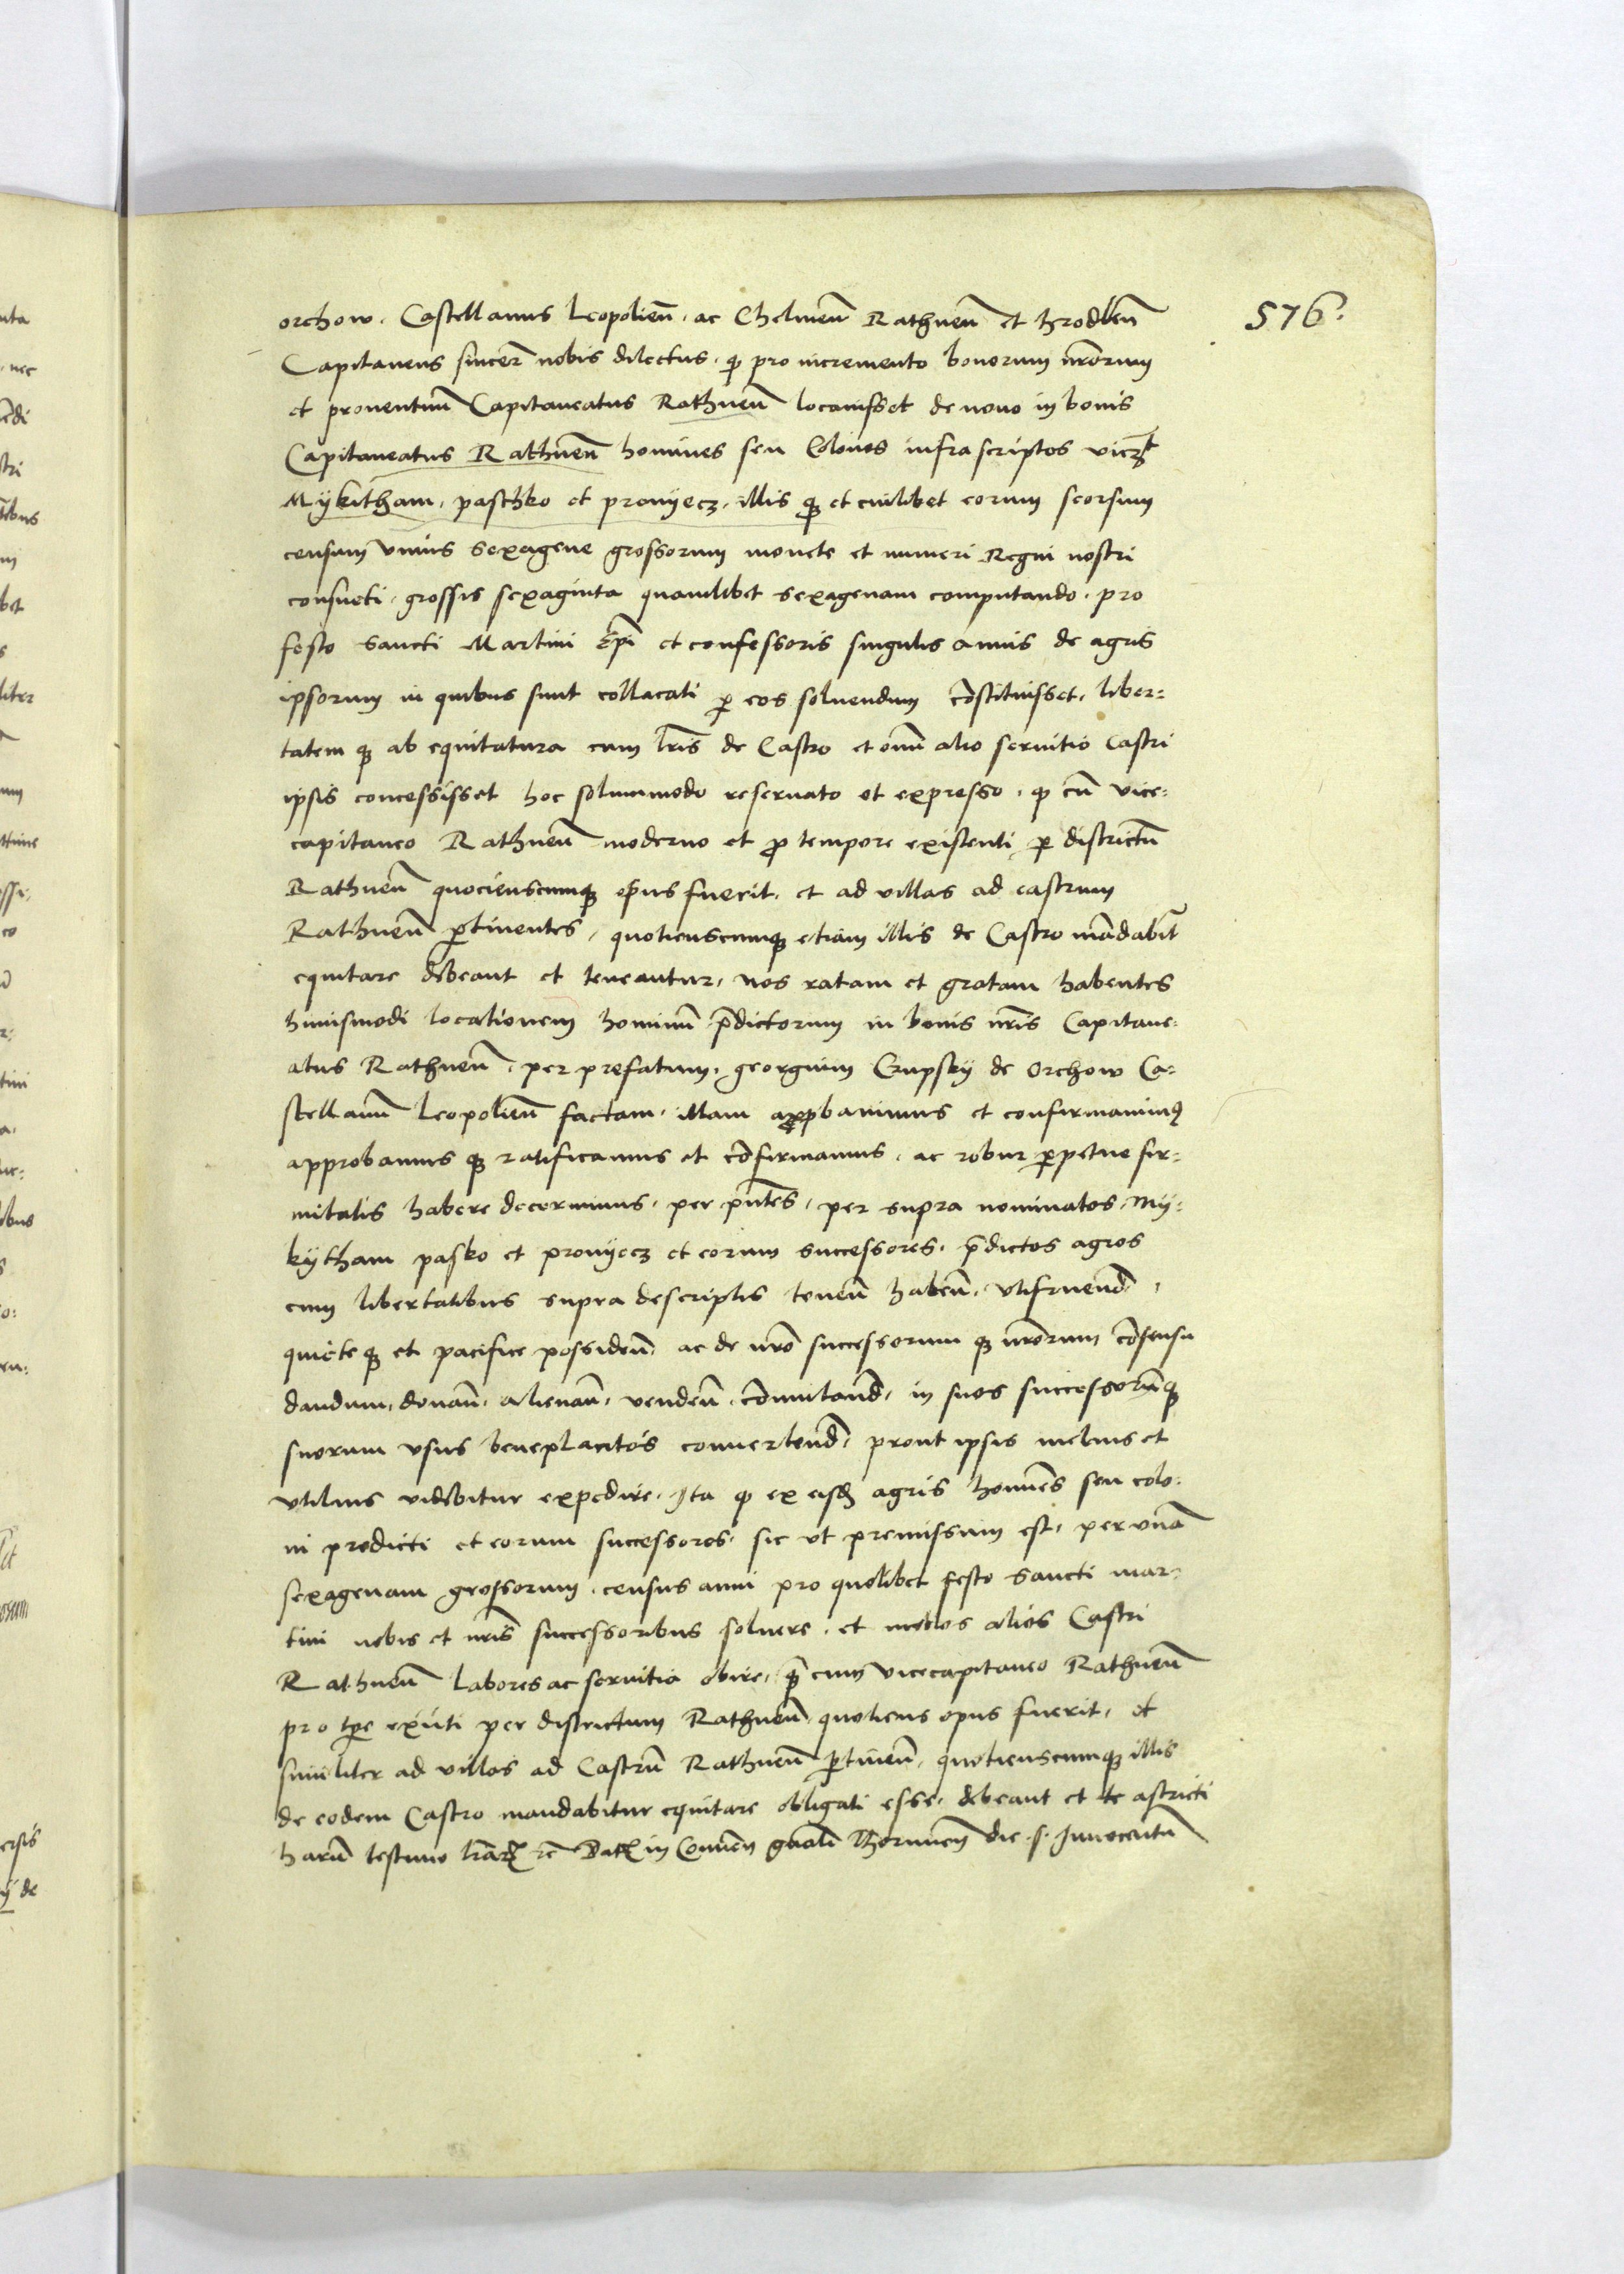 576.
orchow. Castellanus Leopolień. ac Chelmeń Rathneń et Hrodleń
Capitaneus sincer̃ nobis dilectus. ꝙ pro incremento bonorum nr̃orum
et prouentuũ Capitaneatus Rathneń locauisset de nouo in bonis
Capitaneatus Rathneń homines seu Colonos infrascriptos vicꝫt
Mykitham, paschko et pronyecz, illis ꝙ et cuilibet eorum seorsum
censum vnius sexagene grossorum monete et numeri Regni nostri
consueti, grossis sexaginta quamlibet sexagenam computando. pro
festo sancti Martini Ep̃i et confessoris singulis annis de agris
ipsorum in quibus sunt collacati ꝑ eos soluendum cõstituisset, liber-
tatem qꝫ ab equitatura cum lr̃is de Castro et om̃i alio seruitio castri
ipsis concessisset hoc solummodo reseruato et expresso. ꝙ cũ vice-
capitaneo Rathneń moderno et ꝓ tempore existenti ꝑ districtũ
Rathneń quocienscumqꝫ opus fuerit, et ad villas ad castrum
Rathneń ꝑtinentes, quotienscumqꝫ etiam illis de Castro mãdabit̃
equitare debeant et teneantur, nos ratam et gratam habentes
huiusmodi locationem hominũ p̃dictorum in bonis nr̃is Capitane-
atus Rathneń, per prefatum, georgium Crupsky de Orchow Ca-
stellanũ Leopolień factam, illam appꝓbauimus et confirmauimꝰ
approbamus qꝫ ratificamus et cõfirmamus, ac robur ꝑpetue fir-
mitatis habere decernimus, per pñtes, per supra nominatos, My-
kytham pasko et pronyecz et eorum successores, p̃dictos agros
cum libertatibus supra descriptis teneń habeń, vtifruend̃,
quiete qꝫ et pacifice possideń, ac de nr̃o successorum qꝫ nr̃orum cõsensu
dandum, donań, alienań, vendeń, cõmutand̃, in suos successorũqꝫ
suorum vsus beneplacitos conuertend̃, prout ipsis melius et
vtilius videbitur expedire, Ita ꝙ ex eisd̃ agris homines seu colo-
ni predicti et eorum successores, sic vt premissum est, per vnã
sexagenam grossorum, census anni pro quolibet festo sancti mar-
tini nobis et nr̃is successoribus soluere, et alios Castri
Rathneń labores ac seruitia obire, cum vicecapitaneo Rathneń
pro tp̃e exñti per districtum Rathneń quotiens opus fuerit, et
similiter ad villas ad Castrũ Rathneń ꝑtineń, quotienscumqꝫ illis
de eodem Castro mandabitur equitare obligati esse, debeant et te astricti
harũ testimo lr̃aꝝ rc̃ Datꝫ in Conueñ gñali Thoruneñ die .s. Innocentũ